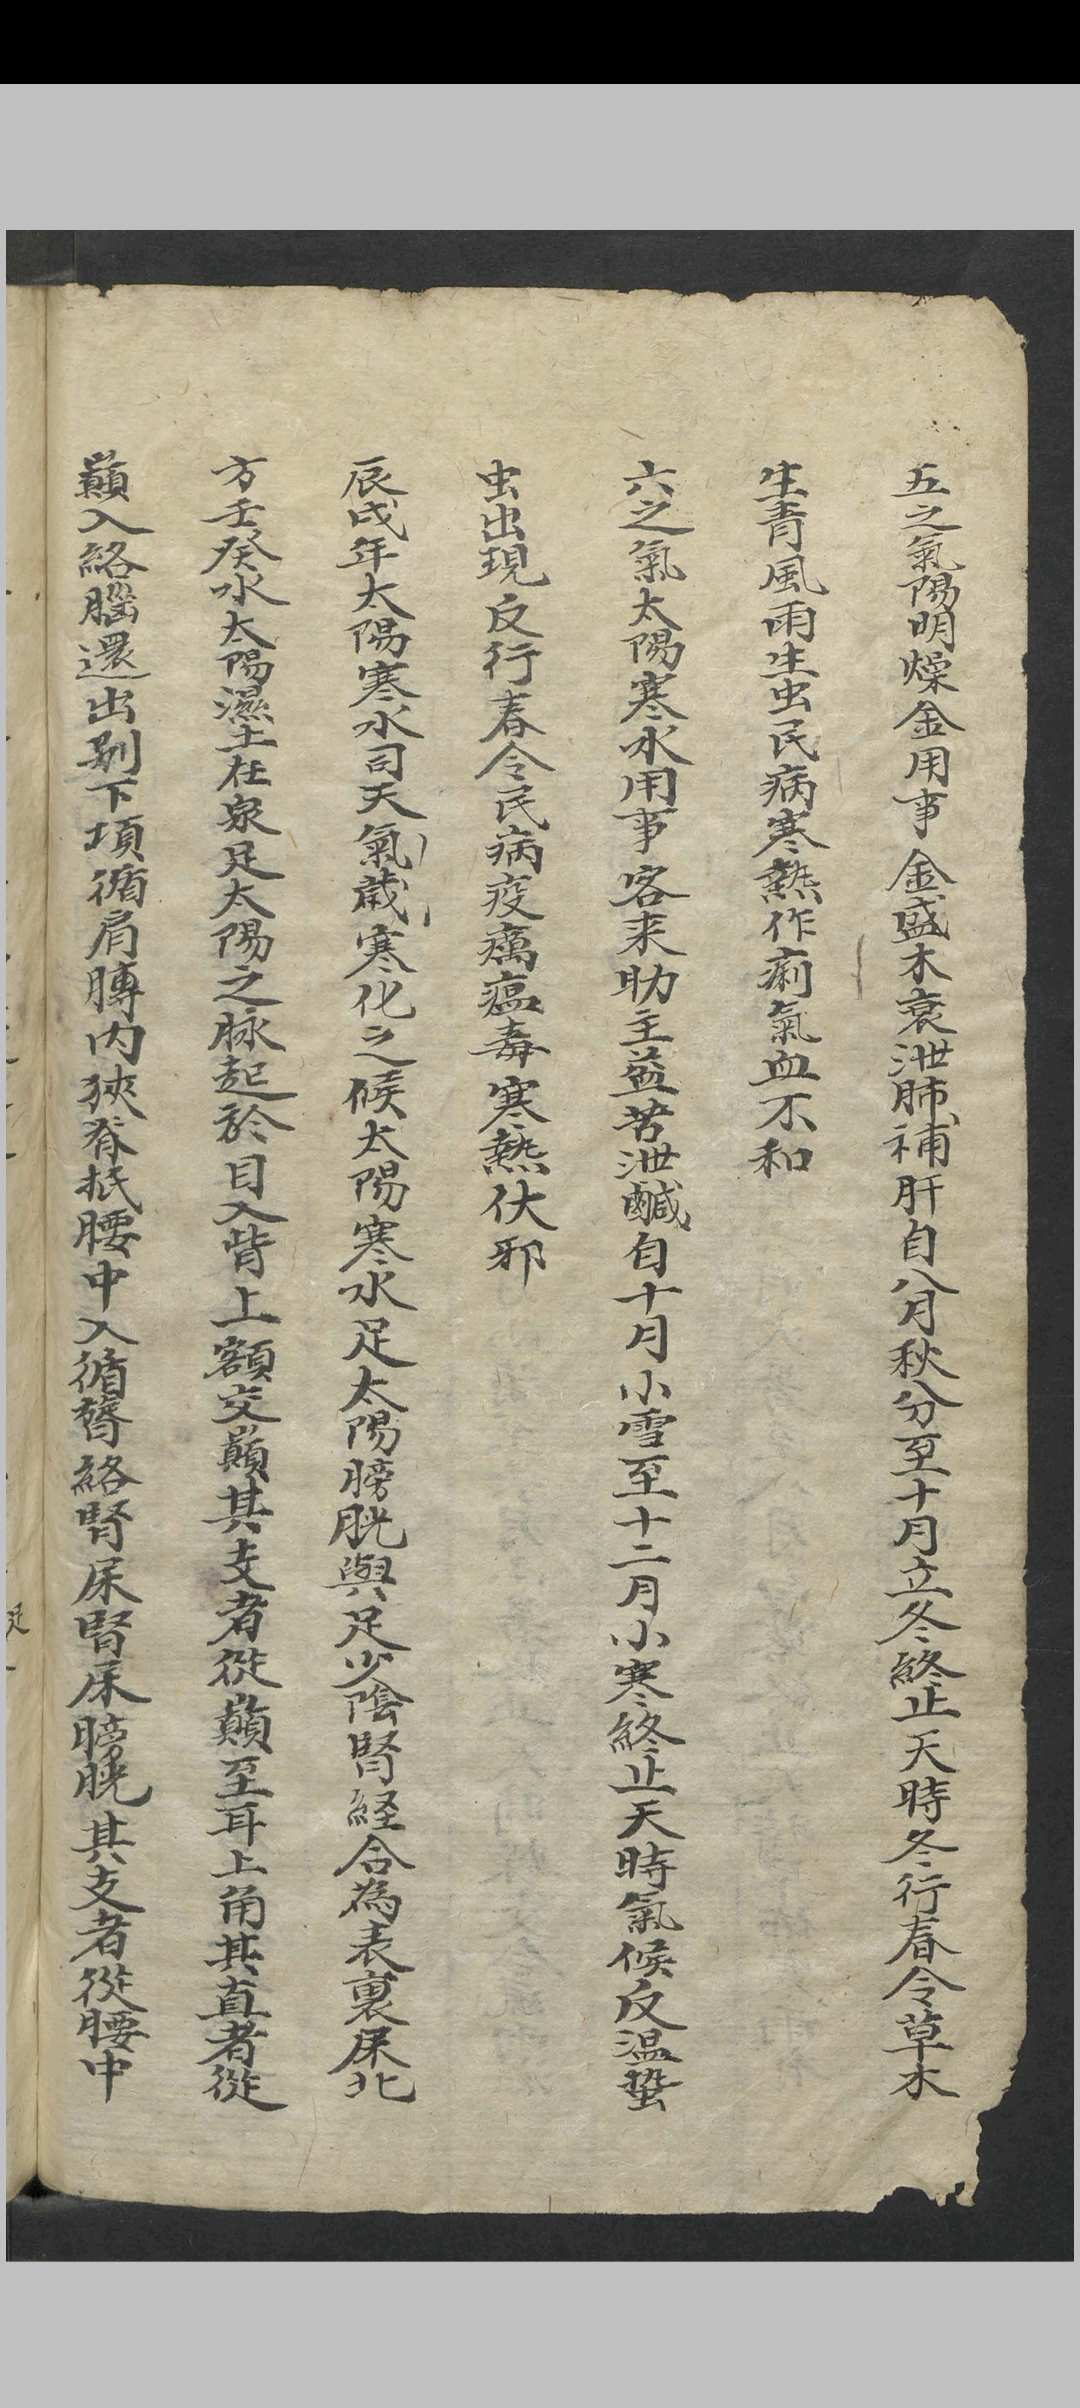 五之氣陽明燥金用事金盛木衰泄肺補肝自八月秋分至十月立冬終止天時冬行春令草木
生青風雨生虫民病寒熱作痢氣血不和
六之氣太陽寒水用事客来助主益苦泄鹹自十月小雪至十二月小寒終止天時氣候反温蛰
虫出現反行春令民病疫癘瘟毒寒熱伏邪
辰戌年太陽寒水司天氣歲寒化之候太陽寒水足太陽膀胱與足少陰腎経合為表裏屎北
方壬癸水太陽濕土在泉足太陽之脉起於目入眥上額交巔其支者從巔至耳上角其直者從
巔入絡腦還出别下項循肩膊内狹脊抵腰中入循膂絡腎屎腎屎膀胱其支者從腰中